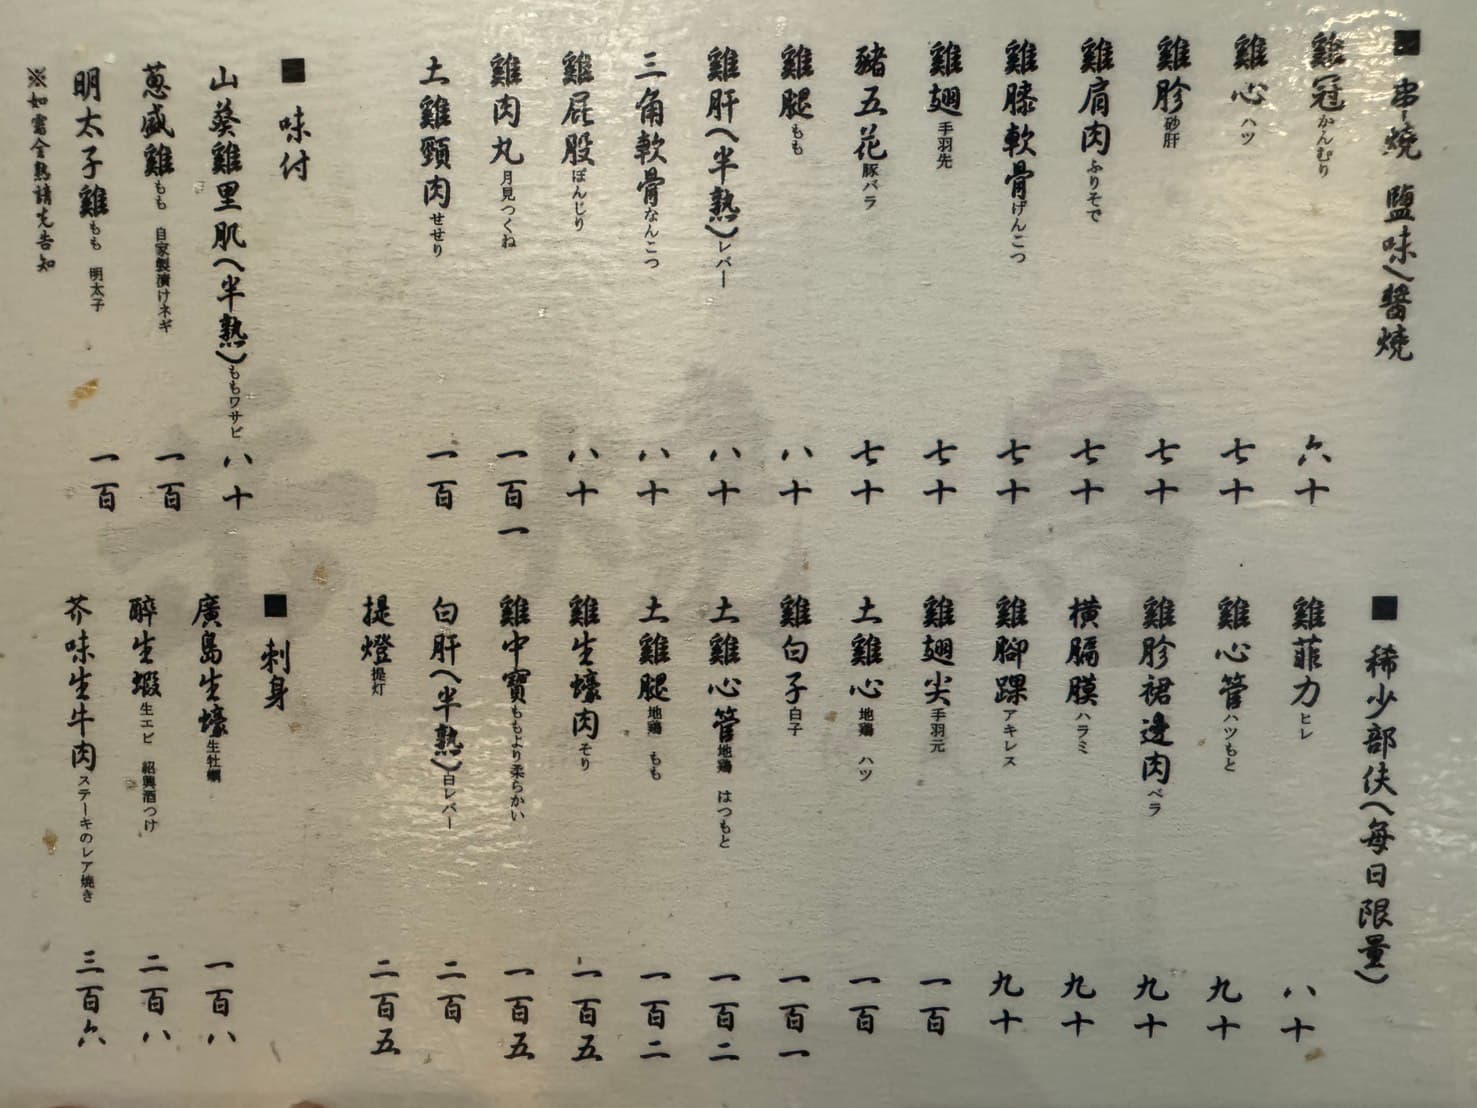 ■ 串燒 鹽味/醬燒
雞冠かんむり 六十
雞心ハツ 七十
雞胗砂肝 七十
雞肩肉ふりそで 七十
雞膝軟骨げんこつ 七十
雞翅手羽先 七十
豬五花豚バラ 七十
雞腿もも 八十
雞肝(半熟)レバー 八十
三角軟骨なんこつ 八十
雞屁股ぼんじり 八十
雞肉丸月見つくね 一百一
土雞頸肉せせり 一百
■ 味付
山葵雞里肌(半熟)ももワサビ 八十
蔥盛雞もも 自家製漬けネギ 一百
明太子雞もも 明太子 一百
※如需全熟請先告知
■ 稀少部位(每日限量)
雞菲力ヒレ 八十
雞心管ハツもと 九十
雞胗裙邊肉ベラ 九十
橫膈膜ハラミ 九十
雞腳踝アキレス 九十
雞翅尖手羽元 一百
土雞心地鶏 ハツ 一百
雞白子白子 一百一
土雞心管地鶏 はつもと 一百二
土雞腿地鶏 もも 一百二
雞生蠔肉そり 一百五
雞中寶ももより柔らかい 一百五
白肝(半熟)白レバー 二百
提燈提灯 二百五
■ 刺身
廣島生蠔生牡蠣 一百八
醉生蝦生エビ 紹興酒つけ 二百八
芥味生牛肉ステーキのレア焼き 三百六